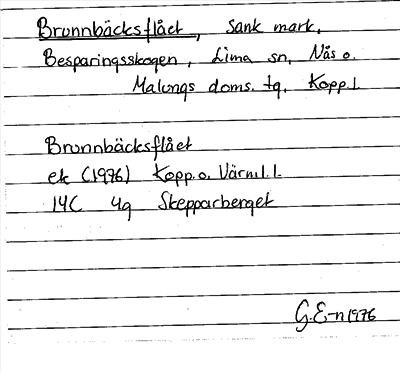 Brunnbäcksflået, sank mark,
Besparingsskogen, Lima sn, Nås o.
Malungs doms. tg, Kopp. l.
Brunnbäcksflået
ek (1976) Kopp. o. Värml. l.
14C 4g Skepparberget
G.E-n 1976